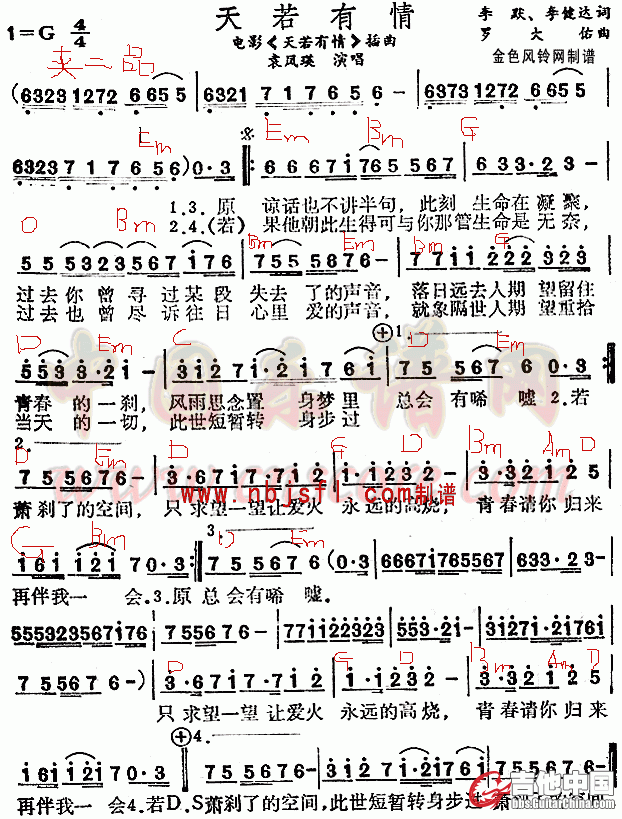 天若有情
1=G 4/4
电影《天若有情》插曲
袁凤瑛 演唱
李 默、李健达词
罗大佑曲
金色风铃网制谱
夹二品
(6323 1272 6 655 | 6321 7 1 7 6 5 6 - | 6373 1272 6 655 |
Em Em Bm G
6323 7 1 7 6 5 6) 0·3 ‖: 6 6 6 6 7 1 7 6 5 5 6 7 | 6 3 3·2 3 - |
1.3.原 谅话也不讲半句,此刻 生命在凝聚,
2.4.(若) 果他朝此生得可与你那管生命是无奈,
D Bm Bm Em Bm G
5 5 5 3 2 3 5 6 7 1 7 6 | 7 5 5 5 6 7 6 - | 7 7 1 1 2 2 2 3 2 3 |
过去你曾寻过某段失去了的声音,落日远去人期望留住
过去也曾尽诉往日心里爱的声音,就象隔世人期望重拾
D Em C D Em
5 5 3 3·2 1 - | 3 1 2 1 7·1 2 1 7 6 1 | 7 5 5 6 7 6 0·3 :‖
青春的一刹,风雨思念置身梦里总会有唏嘘2.若
当天的一切,此世短暂转身步过
2.
D Em D G D Bm Am D
7 5 5 5 6 7 6 - | 3·6 7 1 7 1 7 1 2 | 1·1 1 2 3 2 - | 3·3 2 1 1 2 5 |
萧刹了的空间,只求望一望让爱火永远的高烧,青春请你归来
www.nbjsfl.com制谱
G Bm 3. D Em
1 6 1 1 2 1 7 0·3 :‖ 7 5 5 6 7 6 (0·3 | 6 6 6 7 1 7 6 5 5 6 7 | 6 3 3·2 3 - |
再伴我一会.3.原总会有唏嘘。
5 5 5 3 2 3 5 6 7 1 7 6 | 7 5 5 6 7 6 - | 7 7 1 1 2 2 3 2 3 | 5 5 3 3·2 1 - | 3 1 2 7 1·2 1 7 6 1 |
D G D Bm Am D
7 5 5 6 7 6 -) | 3·6 7 1 7 · 7 1 2 | 1·1 1 2 3 2 - | 3·3 2 1 1 2 5 |
只求望一望让爱火永远的高烧,青春请你归来
4.
1 6 1 1 2 1 7 0·3 ‖ 7 5 5 5 6 7 6 - | 3 1 2 7 1·2 1 7 6 1 | 7 5 5 5 6 7 6 - ‖
再伴我一会4.若D.S萧刹了的空间,此世短暂转身步过萧刹了的空间
吉他中国
bbs.GuitarChina.com